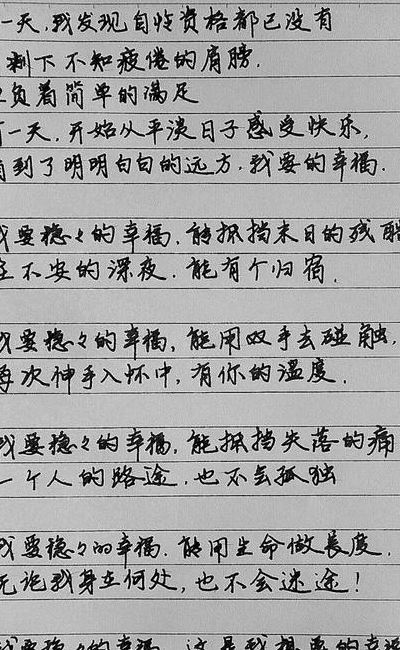 一天，我发现自怜资格都已没有
剩下不知疲倦的肩膀.
负着简单的满足
一天，开始从平淡日子感受快乐，
到了明明白白的远方，我要的幸福.
我要稳々的幸福.能抵挡末日的残酷
在不安的深夜.能有个归宿.
我要稳々的幸福，能用双手去碰触，
每次伸手入怀中，有你的温度.
我要稳々的幸福，能抵挡失落的痛
一个人的路途，也不会孤独
我要稳々的幸福.能用生命做长度，
无论我身在何处，也不会迷途！
我要稳々的幸福.这是我想要的幸福